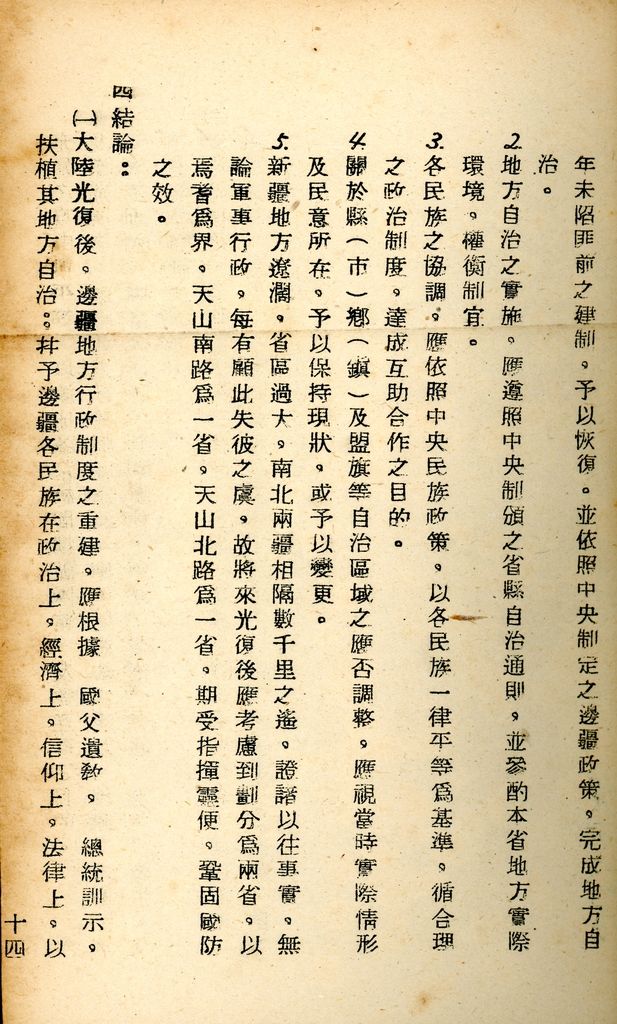 年未陷匪前之建制，予以恢復。並依照中央制定之邊疆政策，完成地方自
治。
2. 地方自治之實施，應遵照中央制頒之省縣自治通則，並參酌本省地方實際
環境，權衡制宜。
3. 各民族之協調，應依照中央民族政策，以各民族一律平等爲基準，循合理
之政治制度，達成互助合作之目的。
4. 關於縣（市）鄉（鎮）及盟旗等自治區域之應否調整，應視當時實際情形
及民意所在，予以保持現狀，或予以變更。
5. 新疆地方遼濶，省區過大，南北兩疆相隔數千里之遙，證諸以往事實，無
論軍事行政，每有顧此失彼之虞，故將來光復後應考慮到劃分爲兩省，以
焉耆爲界，天山南路爲一省，天山北路爲一省，期受指撞靈便，鞏固國防
之效。
四結論：
㈠大陸光復後，邊疆地方行政制度之重建，應根據　國父遺敎，　總統訓示，
扶植其地方自治：幷予邊疆各民族在政治上，經濟上，信仰上，法律上，以
十四